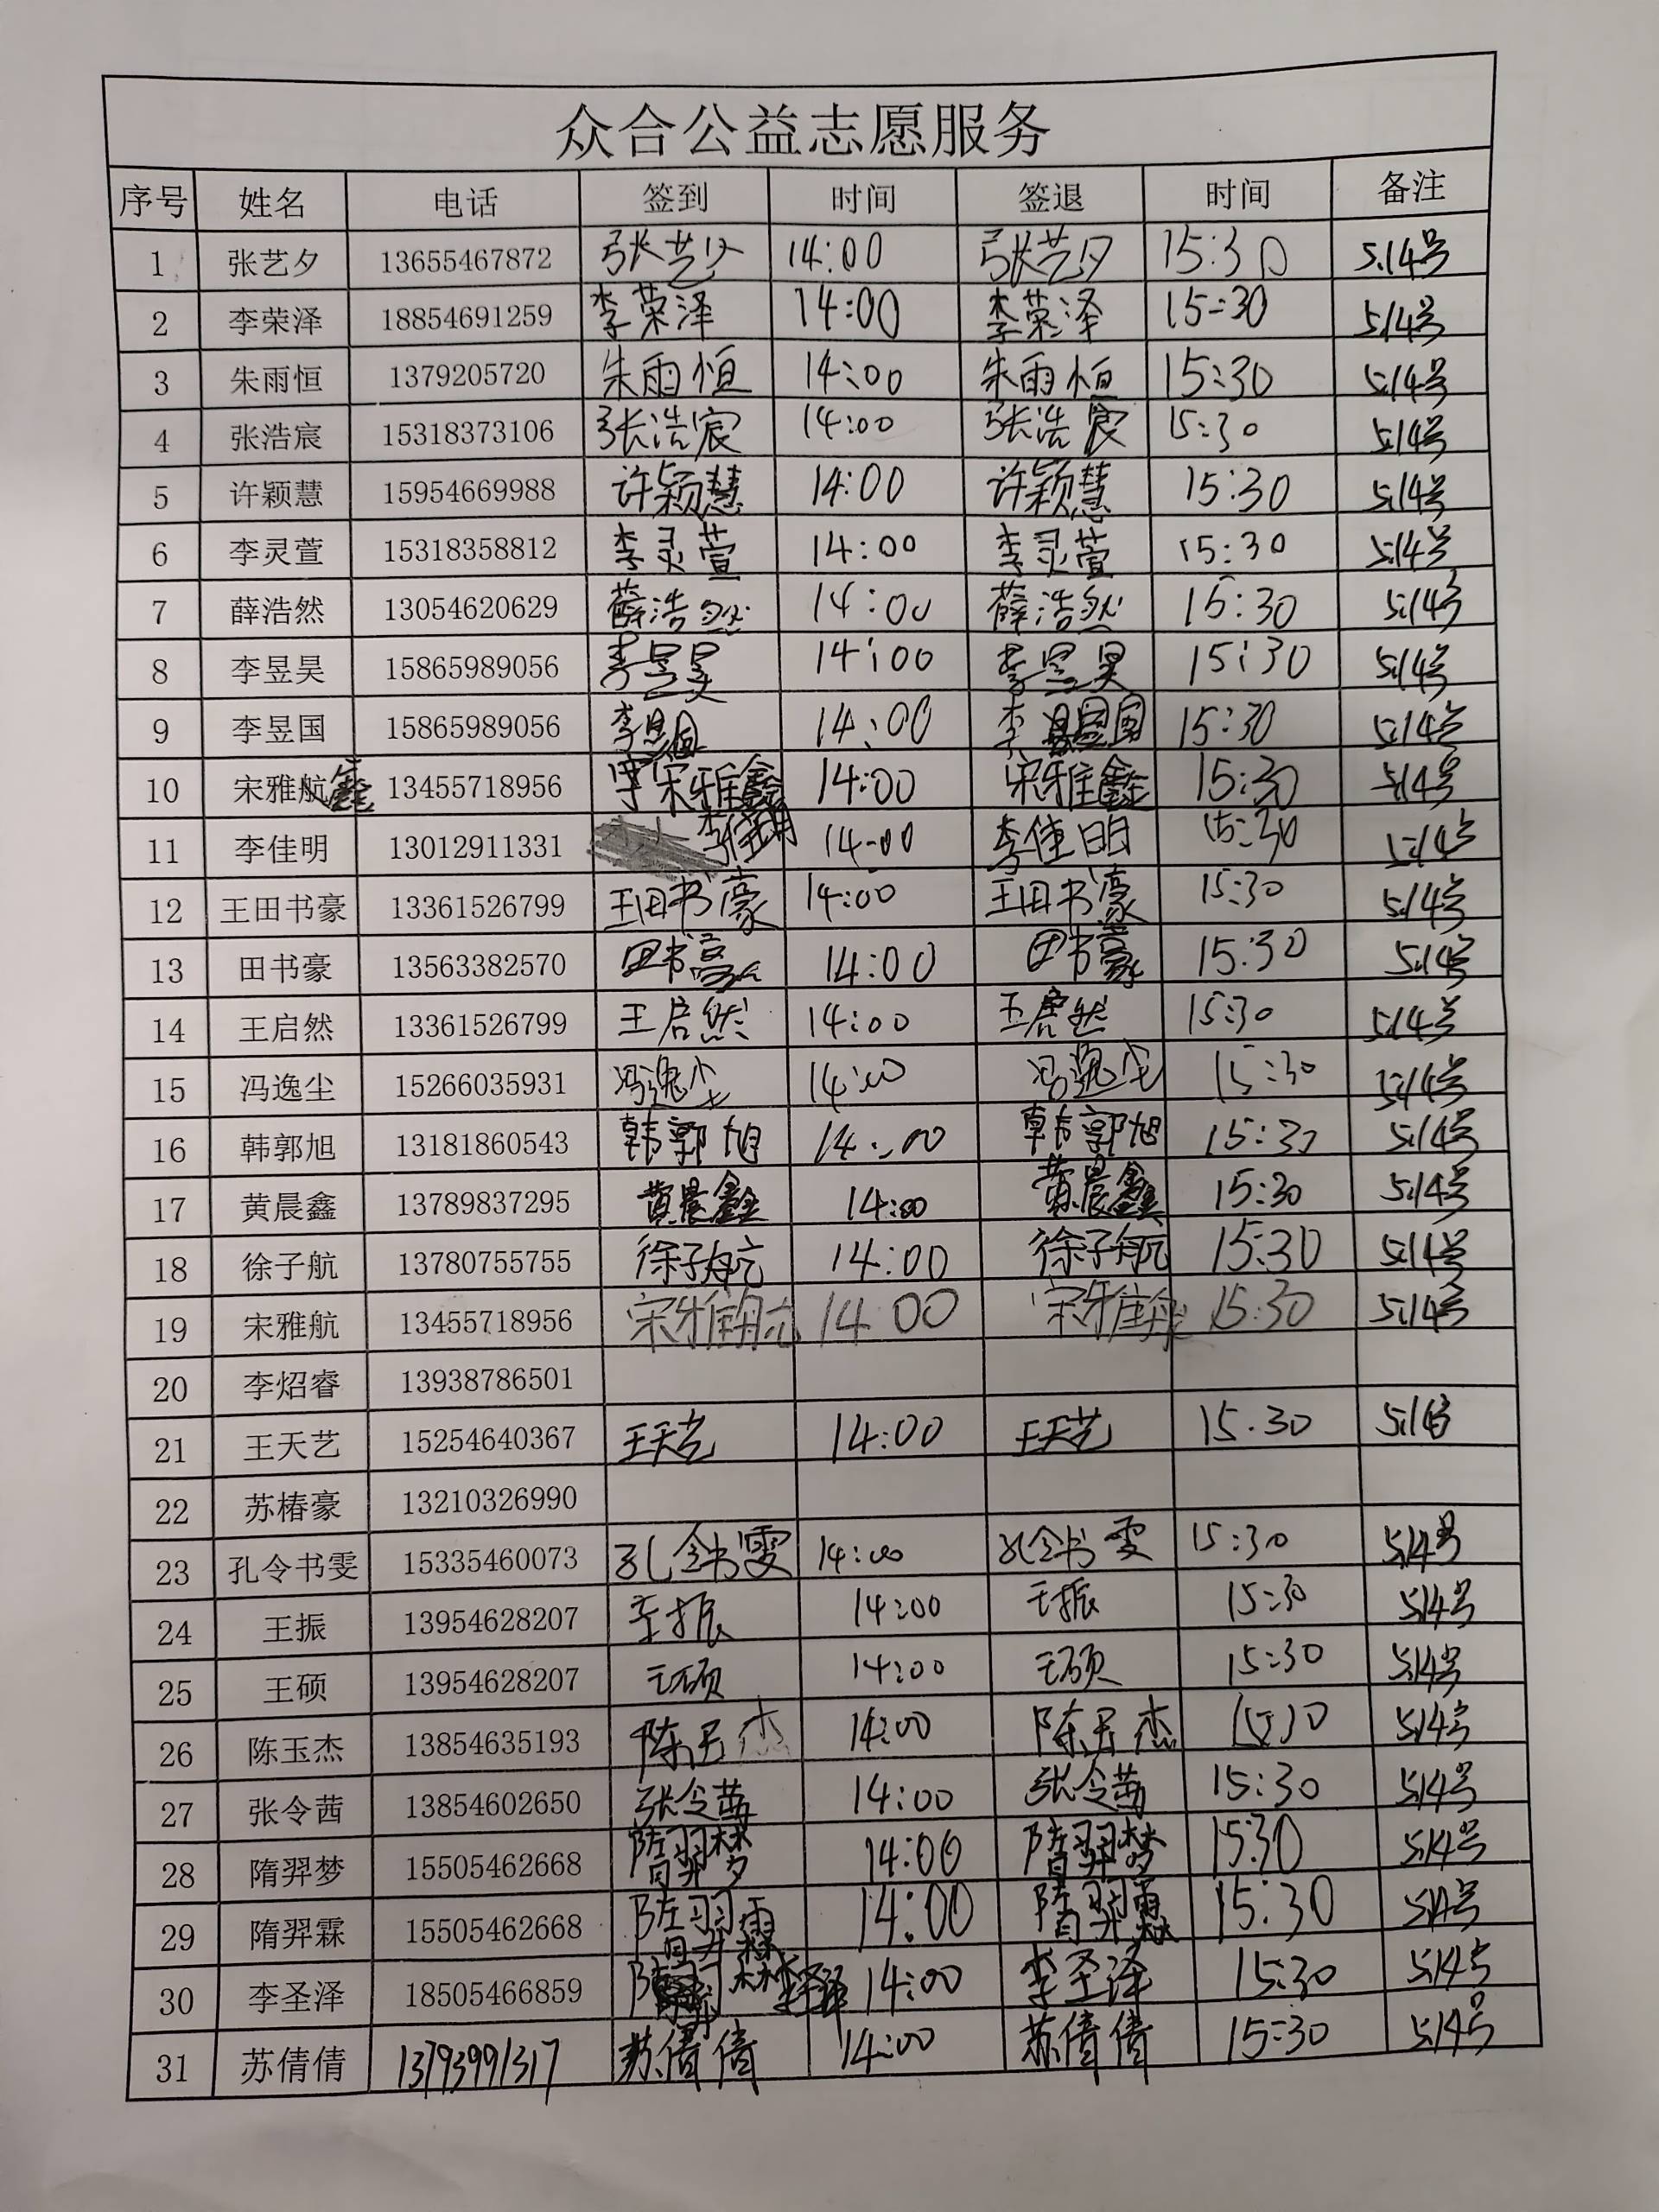 众合公益志愿服务
序号 姓名 电话 签到 时间 签退 时间 备注
1 张艺夕 13655467872 张艺夕 14:00 张艺夕 15:30 5.14号
2 李荣泽 18854691259 李荣泽 14:00 李荣泽 15:30 5.14号
3 朱雨恒 1379205720 朱雨恒 14:00 朱雨恒 15:30 5.14号
4 张浩宸 15318373106 张浩宸 14:00 张浩宸 15:30 5.14号
5 许颖慧 15954669988 许颖慧 14:00 许颖慧 15:30 5.14号
6 李灵萱 15318358812 李灵萱 14:00 李灵萱 15:30 5.14号
7 薛浩然 13054620629 薛浩然 14:00 薛浩然 15:30 5.14号
8 李昱昊 15865989056 李昱昊 14:00 李昱昊 15:30 5.14号
9 李昱国 15865989056 李昱国 14:00 李昱国 15:30 5.14号
10 宋雅航鑫 13455718956 宋雅鑫 14:00 宋雅鑫 15:30 5.14号
11 李佳明 13012911331 李佳明 14:00 李佳明 15:30 5.14号
12 王田书豪 13361526799 王田书豪 14:00 王田书豪 15:30 5.14号
13 田书豪 13563382570 田书豪 14:00 田书豪 15:30 5.14号
14 王启然 13361526799 王启然 14:00 王启然 15:30 5.14号
15 冯逸尘 15266035931 冯逸尘 14:00 冯逸尘 15:30 5.14号
16 韩郭旭 13181860543 韩郭旭 14:00 韩郭旭 15:30 5.14号
17 黄晨鑫 13789837295 黄晨鑫 14:00 黄晨鑫 15:30 5.14号
18 徐子航 13780755755 徐子航 14:00 徐子航 15:30 5.14号
19 宋雅航 13455718956 宋雅航 14:00 宋雅航 15:30 5.14号
20 李炤睿 13938786501
21 王天艺 15254640367 王天艺 14:00 王天艺 15:30
22 苏椿豪 13210326990
23 孔令书雯 15335460073 孔令书雯 14:00 孔令书雯 15:30 5.14号
24 王振 13954628207 王振 14:00 王振 15:30 5.14号
25 王硕 13954628207 王硕 14:00 王硕 15:30 5.14号
26 陈玉杰 13854635193 陈玉杰 14:00 陈玉杰 15:30 5.14号
27 张令茜 13854602650 张令茜 14:00 张令茜 15:30 5.14号
28 隋羿梦 15505462668 隋羿梦 14:00 隋羿梦 15:30 5.14号
29 隋羿霖 15505462668 隋羿霖 14:00 隋羿霖 15:30 5.14号
30 李圣泽 18505466859 李圣泽 14:00 李圣泽 15:30 5.14号
31 苏倩倩 13793991317 苏倩倩 14:00 苏倩倩 15:30 5.14号